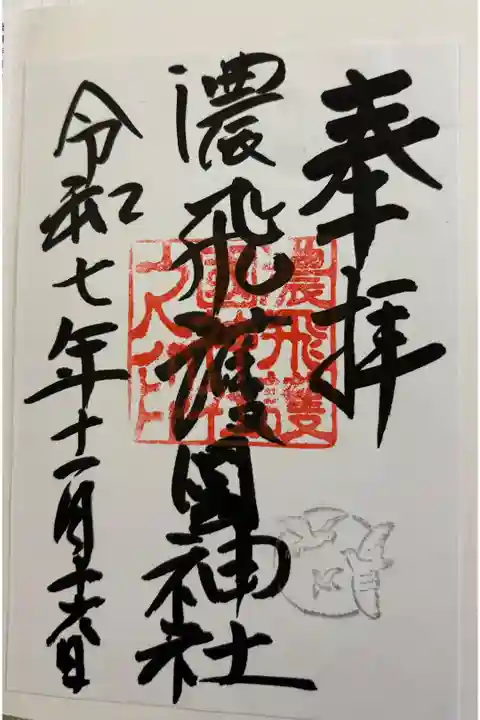 奉拝
濃飛護国神社
令和七年十一月十六日
濃飛護
国神社
之印